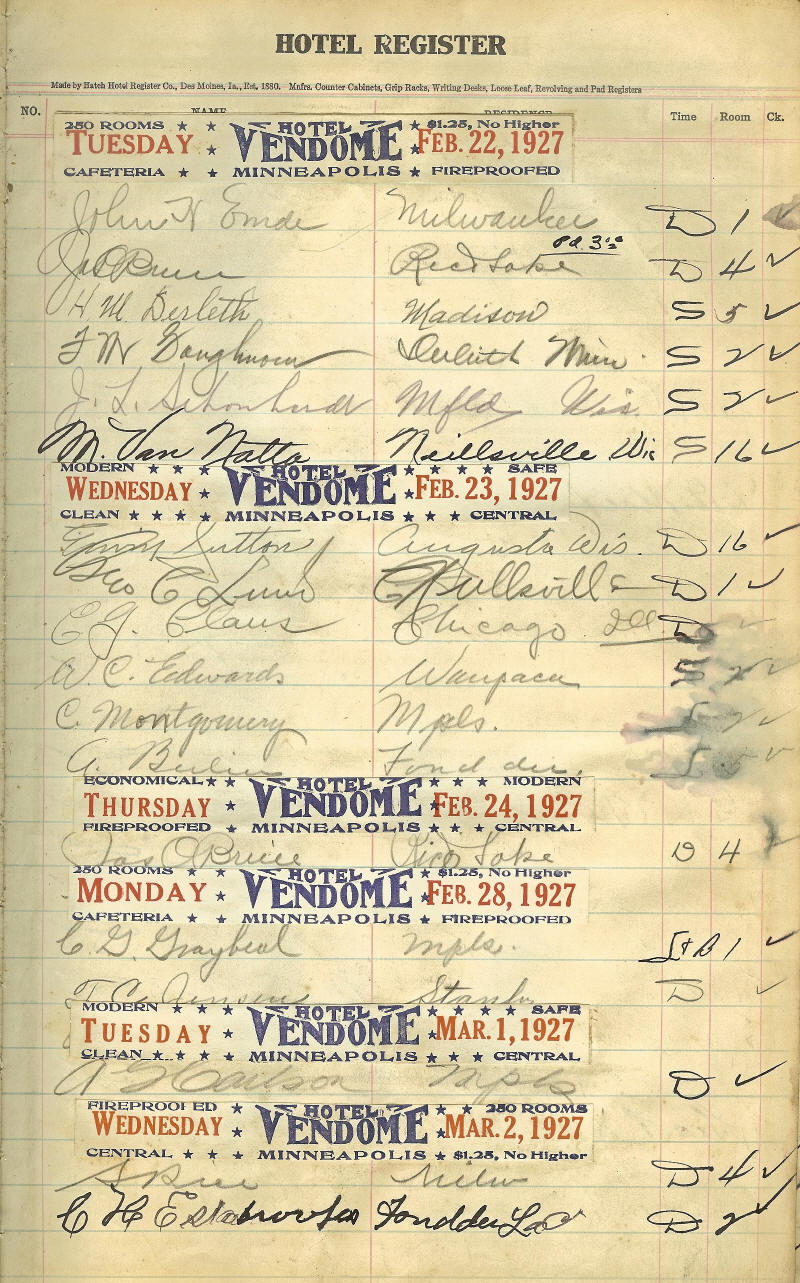 HOTEL REGISTER
Made by Hatch Hotel Register Co., Des Moines, Ia., Est. 1880. Mnfrs. Counter Cabinets, Grip Racks, Writing Desks, Loose Leaf, Revolving and Pad Registers
NO. NAME RESIDENCE Time Room Ck.
250 ROOMS ★ ★ HOTEL ★ $1.25, No Higher
TUESDAY ★ VENDOME ★ FEB. 22, 1927
CAFETERIA ★ ★ MINNEAPOLIS ★ FIREPROOFED
John H Emde Milwaukee D 1
Pd. 3
Jas O Bruce Rice Lake D 4 ✓
H M Derleth Madison S 5 ✓
F W Duluth Minn. S 2 ✓
J. L. Schonhardt Mfld Wis. S 2 ✓
M. Van Natta Neillsville Wis S 16 ✓
MODERN ★ ★ ★ HOTEL ★ ★ ★ ★ SAFE
WEDNESDAY ★ VENDOME ★ FEB. 23, 1927
CLEAN ★ ★ ★ ★ MINNEAPOLIS ★ ★ ★ CENTRAL
Sutton Augusta Wis. D 16 ✓
Geo C D 1 ✓
E J. Claus Chicago Ill D
W. C. Edwards Waupaca S 2 ✓
C. Montgomery Mpls. 2 ✓
A. Fond du
ECONOMICAL ★ ★ HOTEL ★ ★ ★ MODERN
THURSDAY ★ VENDOME ★ FEB. 24, 1927
FIREPROOFED ★ MINNEAPOLIS ★ ★ ★ CENTRAL
Jas O Bruce Rice Lake D 4
250 ROOMS ★ ★ HOTEL ★ $1.25, No Higher
MONDAY ★ VENDOME ★ FEB. 28, 1927
CAFETERIA ★ ★ MINNEAPOLIS ★ FIREPROOFED
C. G. Graybeal Mpls. S+B 1 ✓
T C Jensen D ✓
MODERN ★ ★ ★ HOTEL ★ ★ ★ ★ SAFE
TUESDAY ★ VENDOME ★ MAR. 1, 1927
CLEAN ★ ★ ★ ★ MINNEAPOLIS ★ ★ ★ CENTRAL
A Mpls D ✓
FIREPROOFED ★ HOTEL ★ ★ 250 ROOMS
WEDNESDAY ★ VENDOME ★ MAR. 2, 1927
CENTRAL ★ ★ MINNEAPOLIS ★ $1.25, No Higher
S Rice Milw D 4 ✓
C H Fond du Lac D 2 ✓